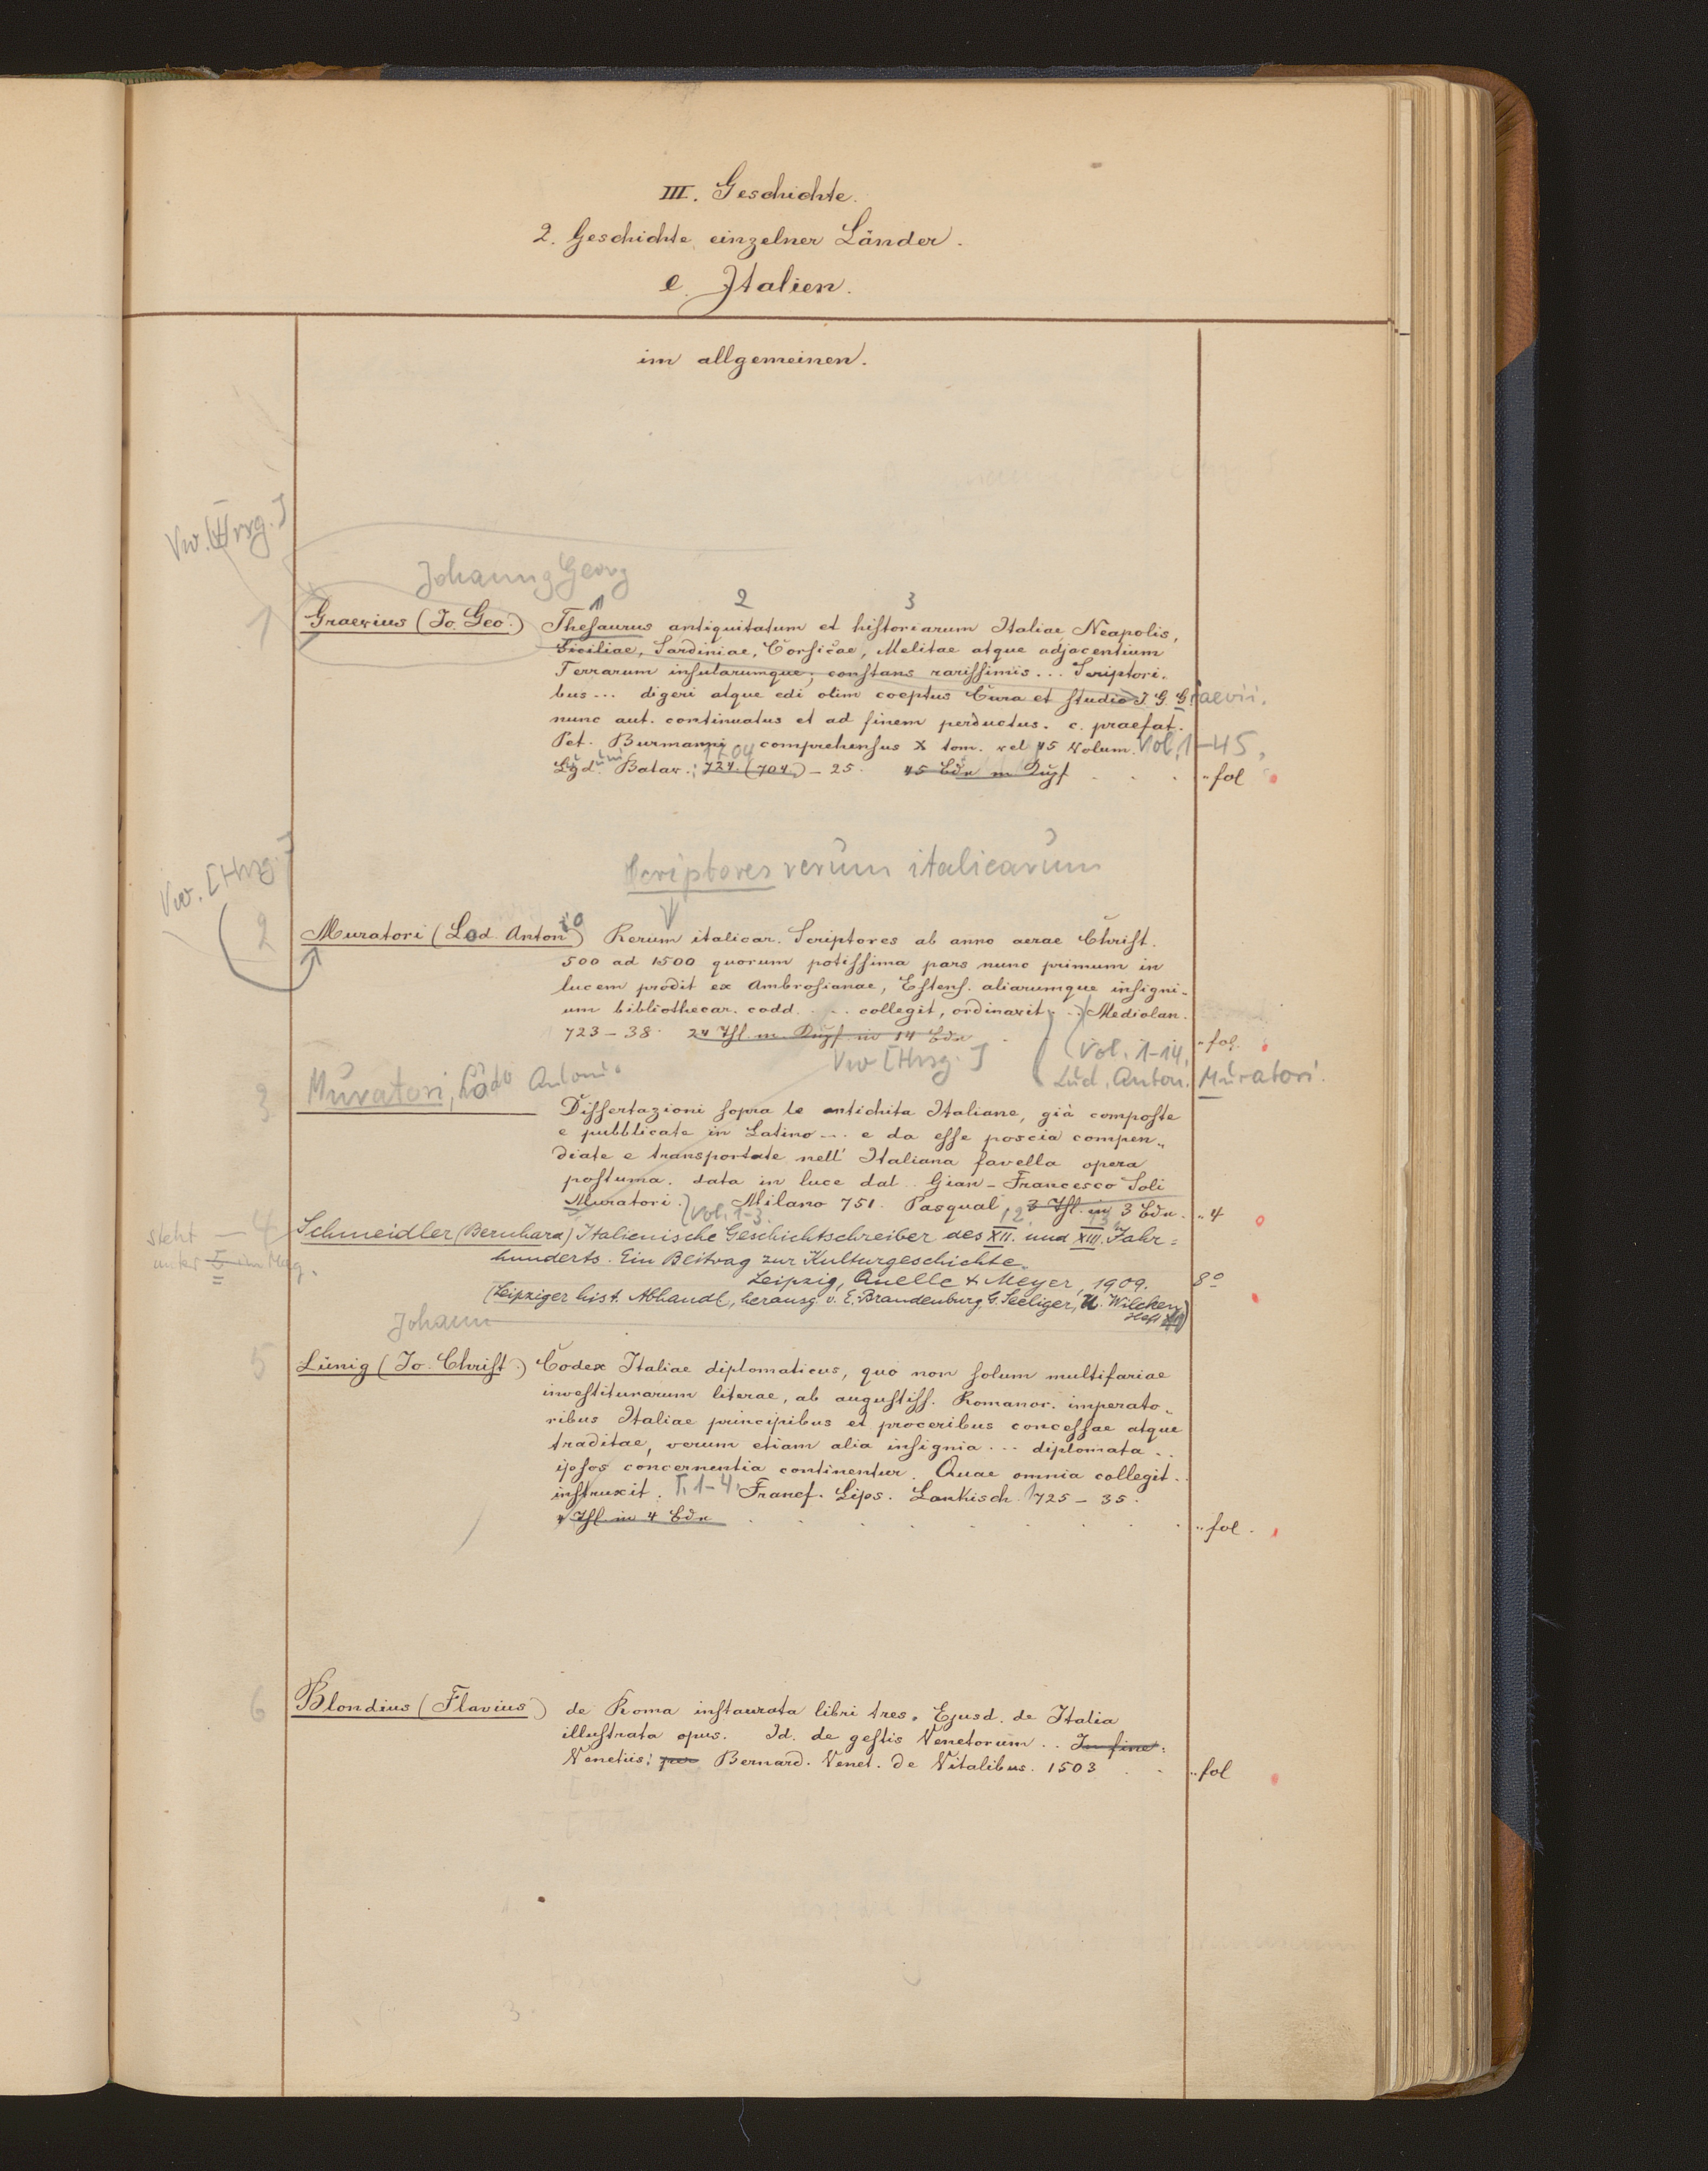 III. Geschichte.
2. Geschichte einzelner Länder.
e. Italien.
im allgemeinen.
Vw. [Hrsg.]
Johann Georg
1 2 3
1 Graevius (Jo. Geo.) Thesaurus antiquitatum et historiarum Italiae, Neapolis,
Siciliae, Sardiniae, Corsicae, Melitae atque adjacentium
Terrarum insularumque, constans rarissimis... Scriptori-
bus... digeri atque edi olim coeptus Cura et studio J. G. Graevii.
nunc aut. continuatus et ad finem perductus. c. praefat.
Pet. Burmanni comprehensus X tom. vel 45 Volum. Vol. 1-45,
1704
Lugduni Batav.: 724. (704.) - 25. 45 Bde m. Kupf . . . „ fol
Scriptores rerum italicarum
Vw. [Hrsg.]
2 Muratori (Lod. Antonio) Rerum italicar. Scriptores ab anno aerae Christ.
500 ad 1500 quorum potissima pars nunc primum in
lucem prodit ex Ambrosianae, Estens. aliarumque insigni-
um bibliothecar. codd. . . . collegit, ordinavit . . Mediolan.
723-38. 24 Thl. m. Kupf. in 14 Bdn . „ fol.
Vw [Hrsg.] Vol. 1-14,
Lud. Anton. Muratori.
3 Muratori, Lodo Antonio
Dissertazioni sopra le antichita Italiane, già composte
e pubblicate in Latino... e da esse poscia compen-
diate e transportate nell' Italiana favella opera
postuma. data in luce dal . Gian-Francesco Soli
Muratori.) Milano 751. Pasquali, 3 Thl. in 3 Bdn. „ 4
Vol. 1-3. 12. 13.
steht — 4
unter
Schmeidler (Bernhard) Italienische Geschichtschreiber des XII. und XIII. Jahr=
hunderts. Ein Beitrag zur Kulturgeschichte.
Leipzig, Quelle & Meyer, 1909. 8°
(Leipziger hist. Abhandl., herausg. v. E. Brandenburg G. Seeliger, U. Wilcken
Heft
Johann
5 Lünig (Jo. Christ.) Codex Italiae diplomaticus, quo non solum multifariae
investiturarum literae, ab augustiss. Romanor. imperato-
ribus Italiae principibus et proceribus concessae atque
traditae, verum etiam alia insignia... diplomata . .
ipsos concernentia continentur. Quae omnia collegit..
instruxit. T. 1-4, Francf. Lips. Lankisch. 1725-35.
4 Thl. in 4 Bdn . . . . . . „ fol.
6 Blondius (Flavius) de Roma instaurata libri tres. Ejusd. de Italia
illustrata opus. Id. de gestis Venetorum . . In fine:
Venetiis: per Bernard. Venet. de Vitalibus. 1503 . . „ fol